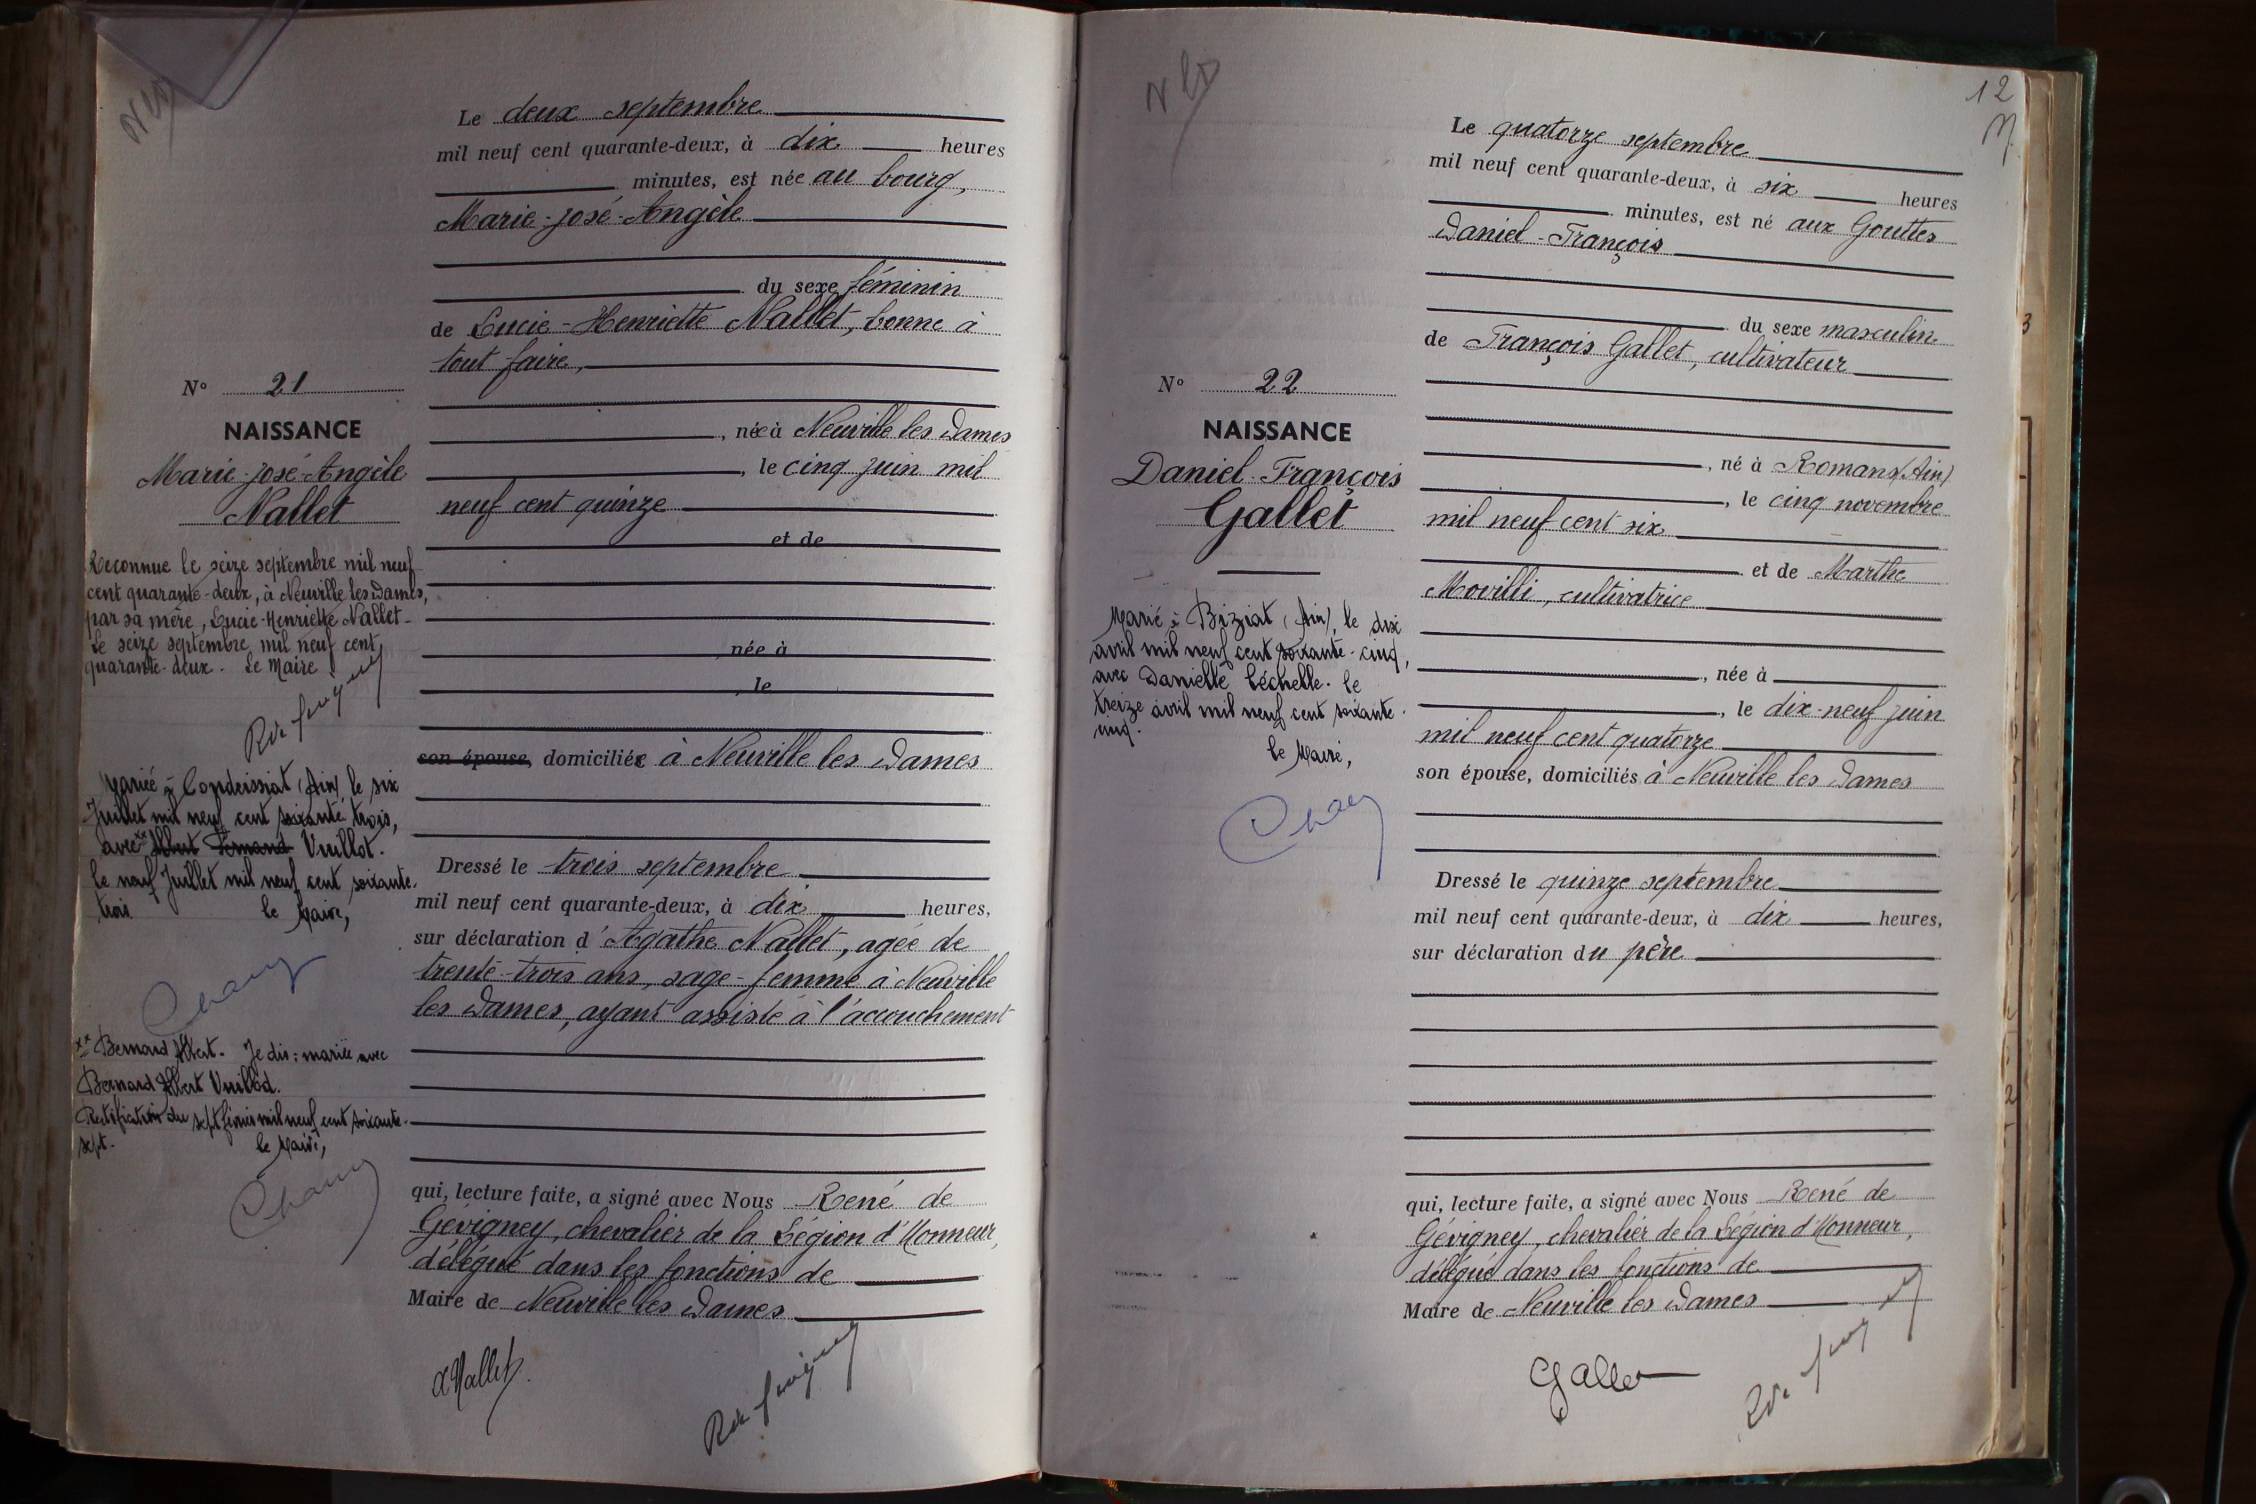 Le deux septembre
mil neuf cent quarante-deux, à dix heures
minutes, est née au bourg,
Marie-José-Angèle
du sexe féminin
de Lucie-Henriette Nallet, bonne à
tout faire,
née à Neuville les Dames
, le cinq juin mil
neuf cent quinze
et de
, née à
, le
son épouse, domiciliée à Neuville les Dames
Dressé le trois septembre
mil neuf cent quarante-deux, à dix heures,
sur déclaration d'Agathe Nallet, agée de
trente-trois ans, sage-femme à Neuville
les Dames, ayant assisté à l'accouchement
qui, lecture faite, a signé avec Nous René de
Gévigney, chevalier de la Légion d'Honneur,
délégué dans les fonctions de
Maire de Neuville les Dames
A Nallet
N° 21
NAISSANCE
Marie-José-Angèle
Nallet
Reconnue le seize septembre mil neuf
cent quarante-deux, à Neuville les Dames,
par sa mère, Lucie-Henriette Nallet-
Le seize septembre mil neuf cent
quarante-deux. Le Maire
Mariée à Condeissiat (Ain) le six
Juillet mil neuf cent soixante trois,
avec xx Albert Fernand Vuillot.
le neuf Juillet mil neuf cent soixante-
trois le Maire,
xx Bernard Albert. Je dis : mariée avec
Bernard Albert Vuillod.
Rectification du sept février mil neuf cent soixante-
sept. le Maire,
12
Le quatorze septembre
mil neuf cent quarante-deux, à six heures
minutes, est né aux Gouttes
Daniel-François
du sexe masculin
de François Gallet, cultivateur
, né à Romans (Ain)
, le cinq novembre
mil neuf cent six
et de Marthe
Movilli, cultivatrice
, née à
, le dix-neuf juin
mil neuf cent quatorze
son épouse, domiciliés à Neuville les Dames
Dressé le quinze septembre
mil neuf cent quarante-deux, à dix heures,
sur déclaration du père
qui, lecture faite, a signé avec Nous René de
Gévigney, chevalier de la Légion d'Honneur,
délégué dans les fonctions de
Maire de Neuville les Dames
Gallet
N° 22
NAISSANCE
Daniel-François
Gallet
Marié à Biziat (Ain), le dix
avril mil neuf cent soixante-cinq,
avec Danielle Léchelle. le
treize avril mil neuf cent soixante-
cinq.
le Maire,